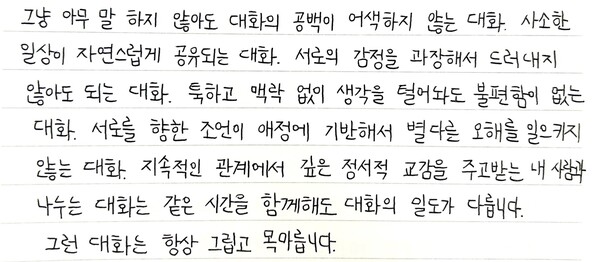 그냥 아무 말 하지 않아도 대화의 공백이 어색하지 않는 대화. 사소한
일상이 자연스럽게 공유되는 대화. 서로의 감정을 과장해서 드러내지
않아도 되는 대화. 툭하고 맥락 없이 생각을 털어놔도 불편함이 없는
대화. 서로를 향한 조언이 애정에 기반해서 별다른 오해를 일으키지
않는 대화. 지속적인 관계에서 깊은 정서적 교감을 주고받는 내 사람과
나누는 대화는 같은 시간을 함께해도 대화의 밀도가 다릅니다.
그런 대화는 항상 그립고 목마릅니다.